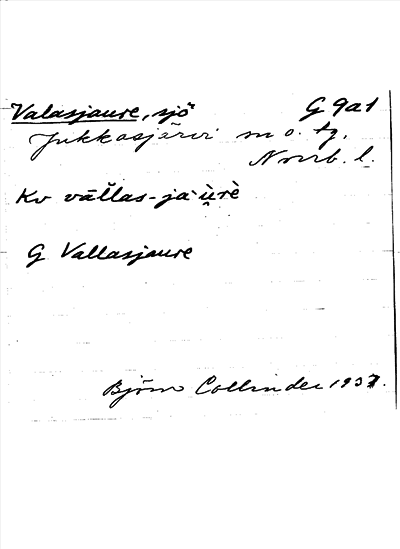 Valasjaure, sjö G 9a1
Jukkasjärvi sn o. tg,
Norrb. l.
Kv vāl̆las-ja·ùrè
G Vallasjaure
Björn Collinder 1937.